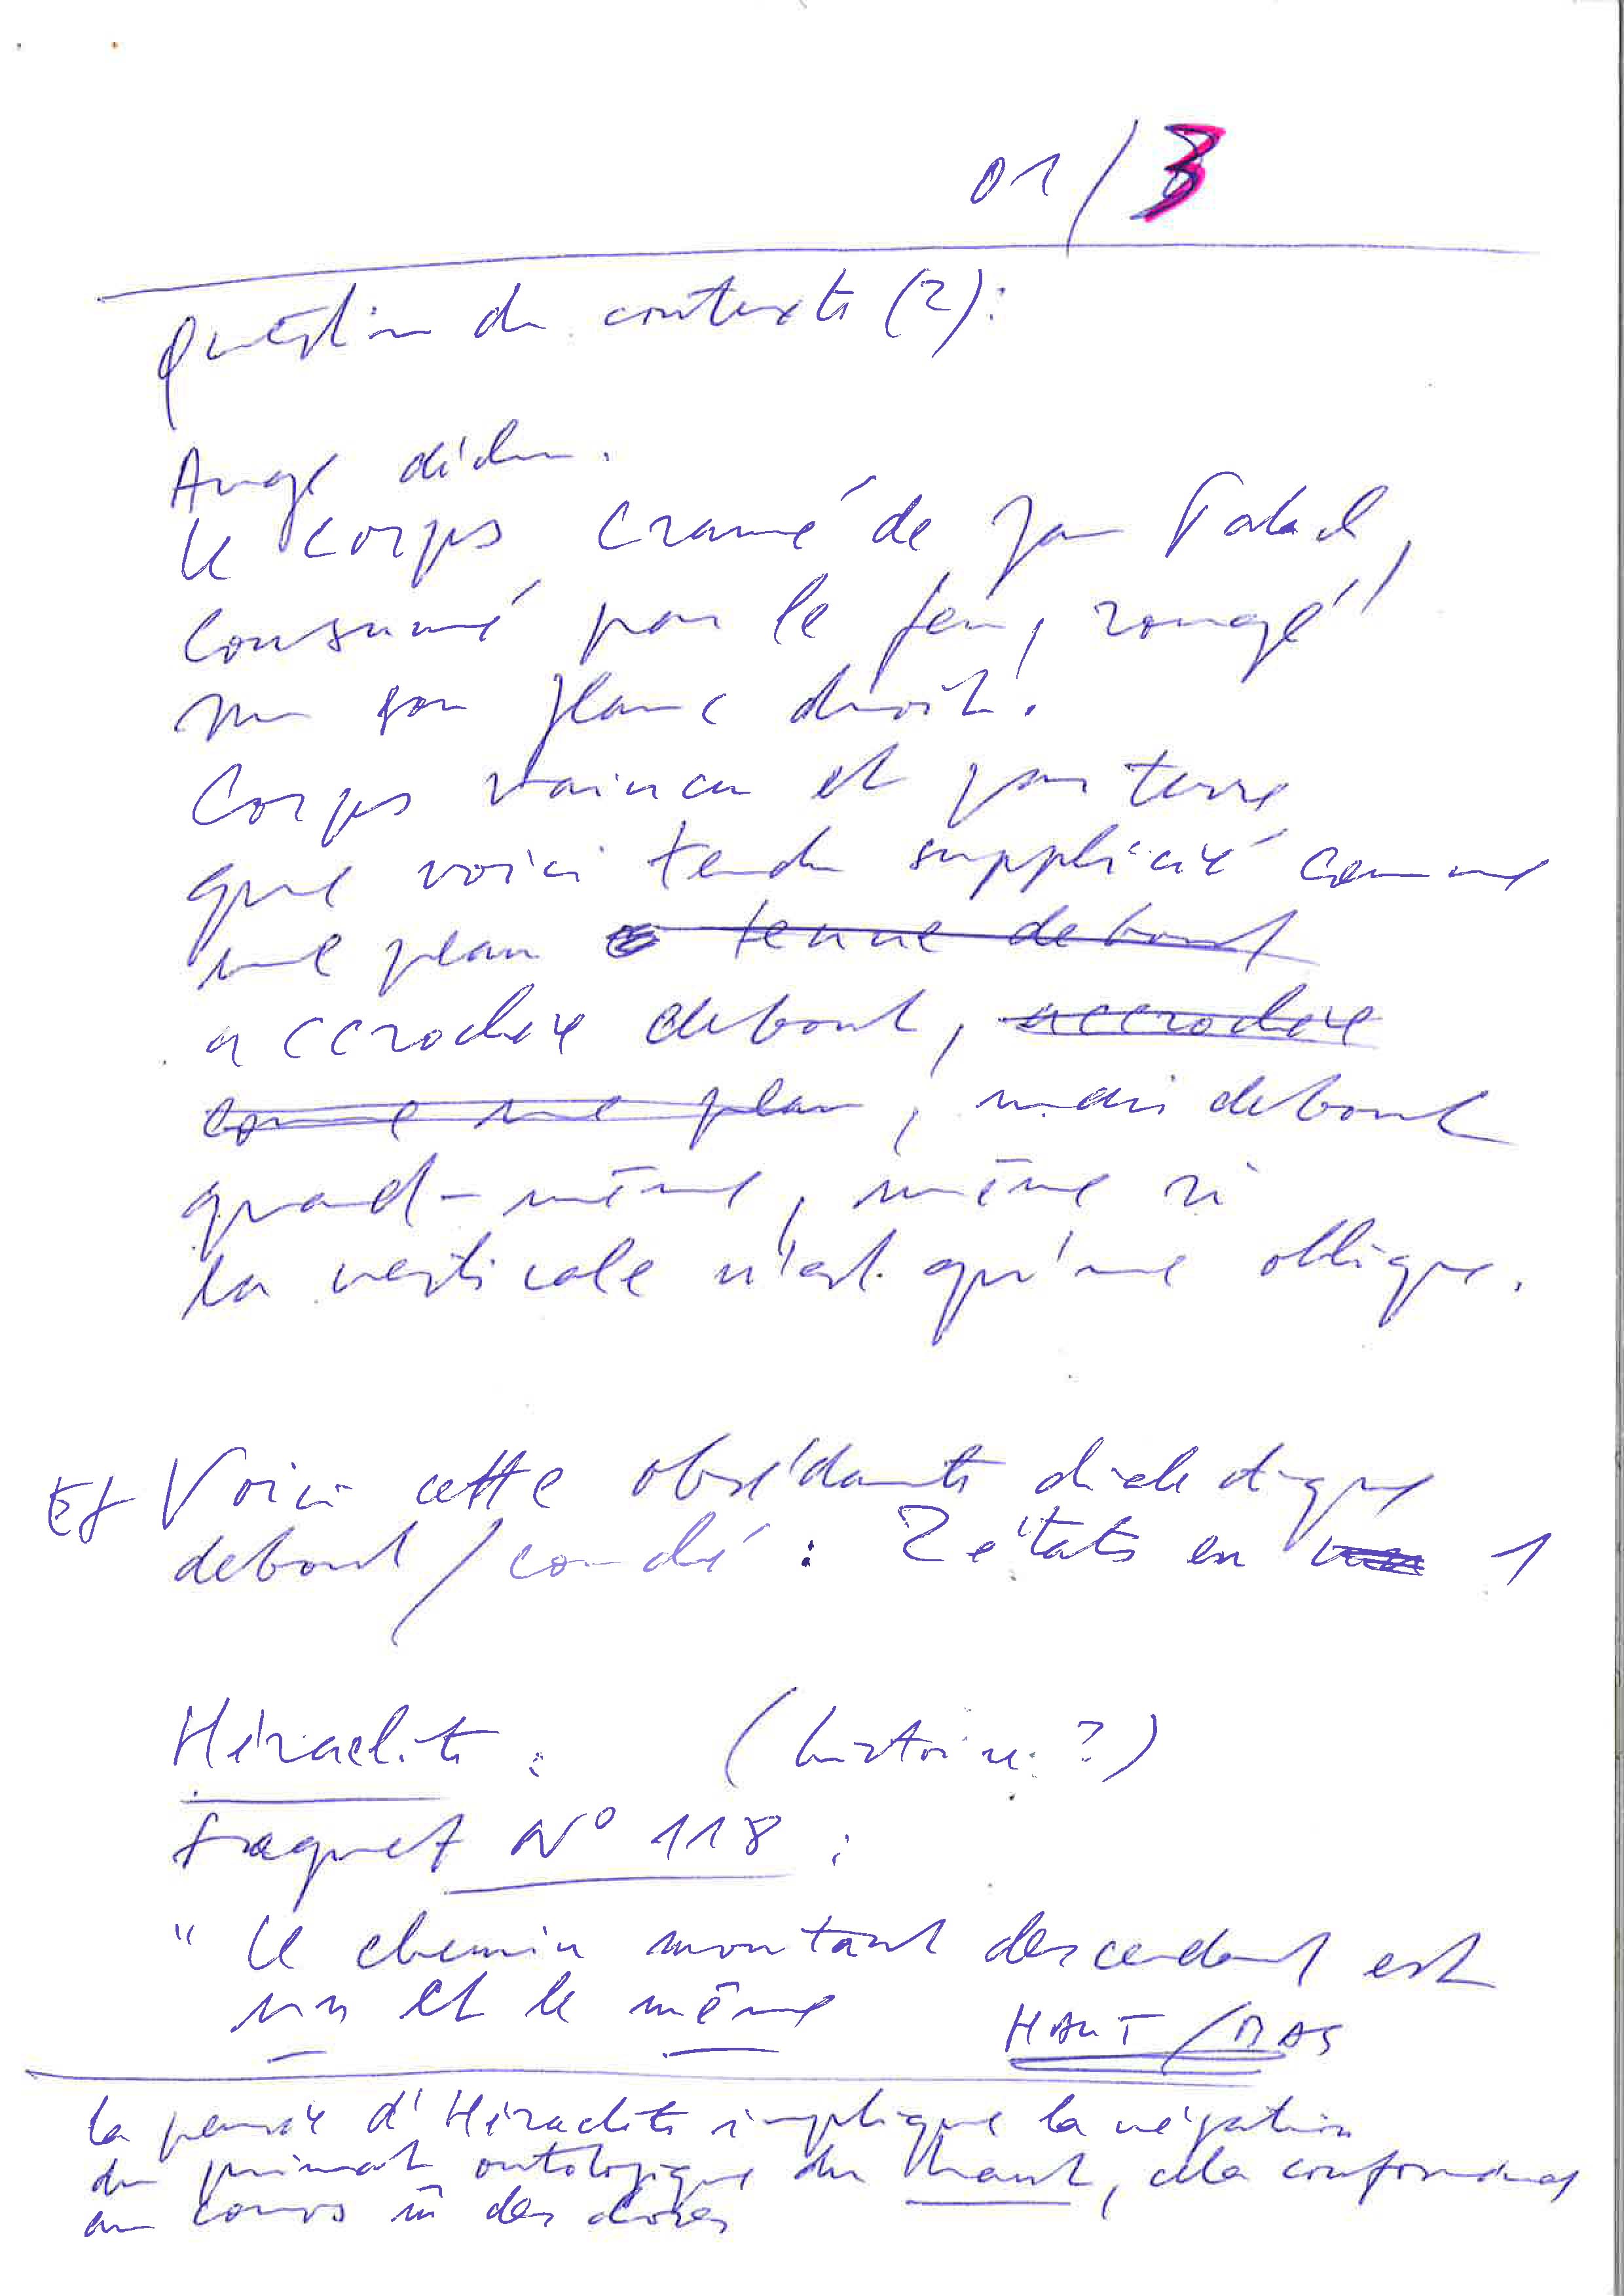 01/3
Question de contexte (2) :
Ange déchu.
Le corps cramé de Jan Palach,
consumé par le feu, rongé
sur son flanc droit.
Corps vaincu et par terre
que voici tendu supplicié comme
une peau tenue debout
accrochée debout, accrochée
comme une peau, mais debout
quand-même, même si
la verticale n'est qu'une oblique.
Et Voici cette obsédante dialectique
debout / couché : 2 états en 1
Héraclite : (histoire ?)
Fragment N° 118 :
" Le chemin montant descendant est
un et le même
HAUT / BAS
La pensée d'Héraclite implique la négation
du primat ontologique du haut, cela conformément
au cours des choses